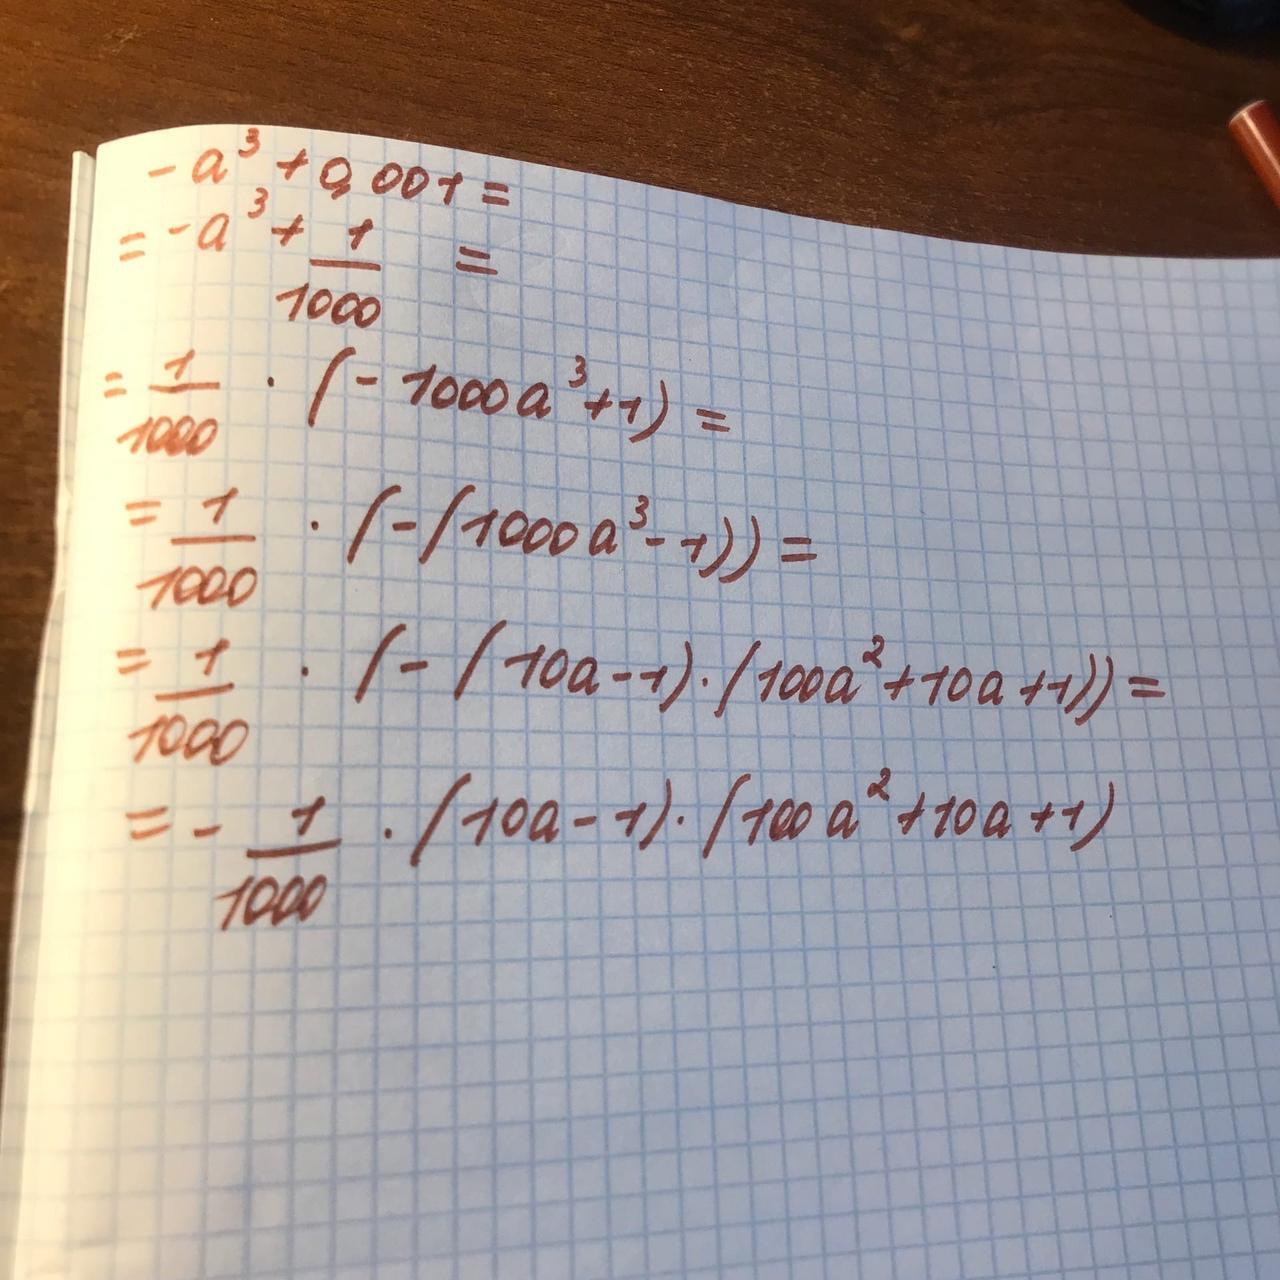 -a³ + 0,001 =
= -a³ + 1/1000 =
= 1/1000 · (-1000a³+1) =
= 1/1000 · (-(1000a³-1)) =
= 1/1000 · (-(10a-1)·(100a²+10a+1)) =
= - 1/1000 · (10a-1)·(100a²+10a+1)